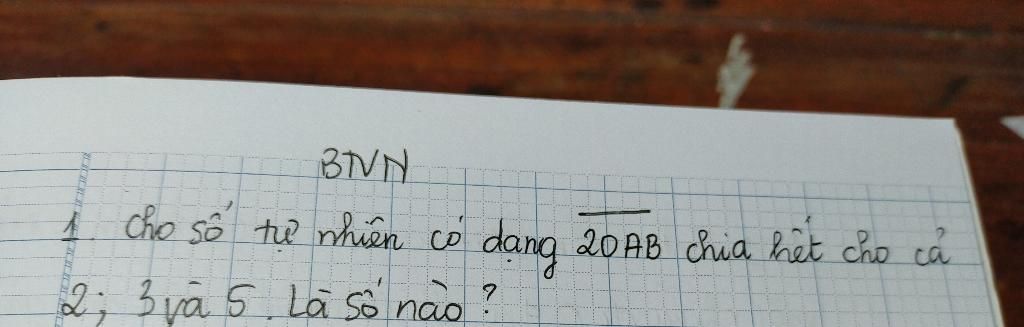 BTVN
1. Cho số tự nhiên có dạng 20AB chia hết cho cả
2; 3 và 5. Là số nào?